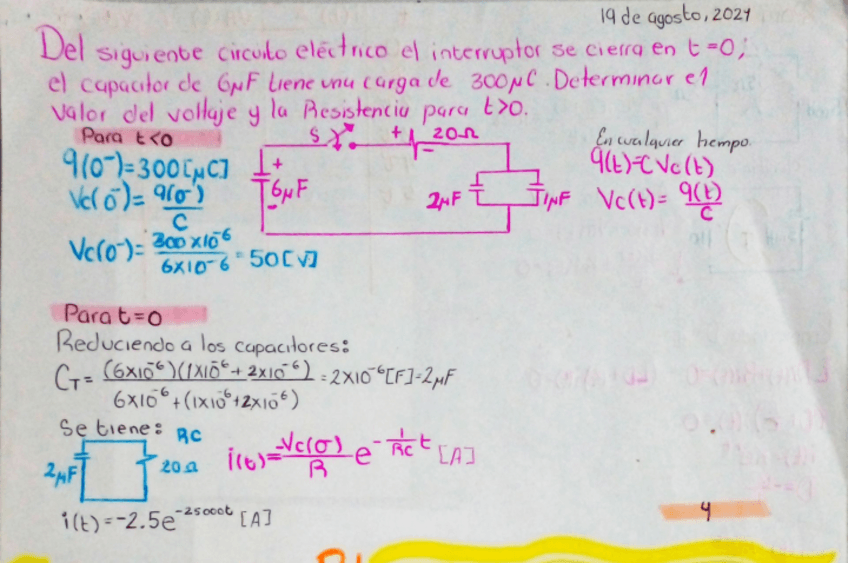 19 de agosto, 2021
Del siguiente circuito eléctrico el interruptor se cierra en t=0;
el capacitor de 6μF tiene una carga de 300μC. Determinar el
valor del voltaje y la Resistencia para t>0.
Para t<0
q(0⁻)=300[μC]
Vc(0⁻)= q(0⁻)/C
Vc(0⁻)= 300x10⁻⁶/6x10⁻⁶ = 50[V]
S + 20Ω
+ 6μF -
2μF 1μF
En cualquier tiempo
q(t)=C Vc(t)
Vc(t)= q(t)/C
Para t=0
Reduciendo a los capacitores:
C_T= (6x10⁻⁶)(1x10⁻⁶+2x10⁻⁶)/6x10⁻⁶+(1x10⁻⁶+2x10⁻⁶) = 2x10⁻⁶[F]=2μF
Se tiene: RC
2μF 20Ω
i(t)= -Vc(0⁻)/R e^(-1/RC t) [A]
i(t)=-2.5e^(-25000t) [A]
4